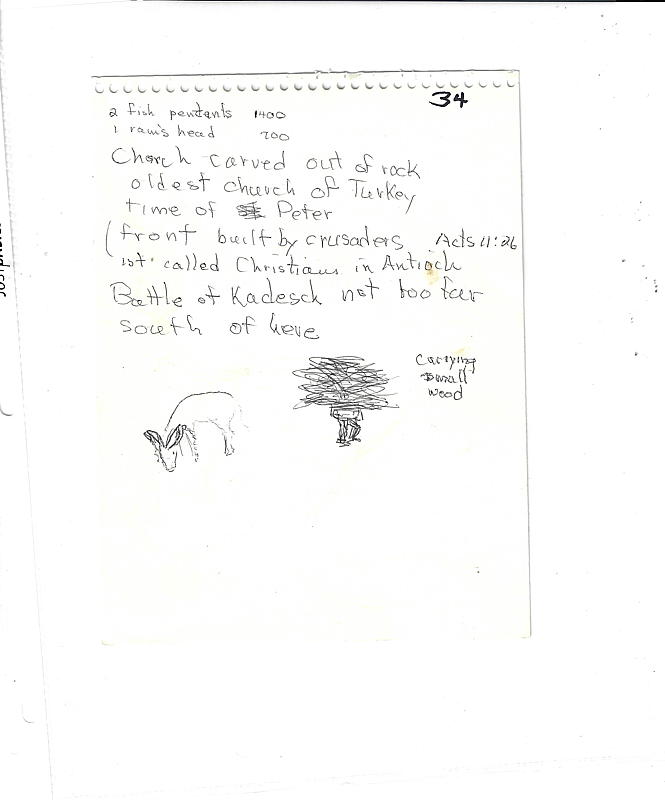 34
2 fish pendants 1400
1 ram's head 700
Church carved out of rock
oldest church of Turkey
time of St Peter
(front built by crusaders Acts 11:26
1st called Christians in Antioch
Battle of Kadesch not too far
south of here
Carrying
small
wood